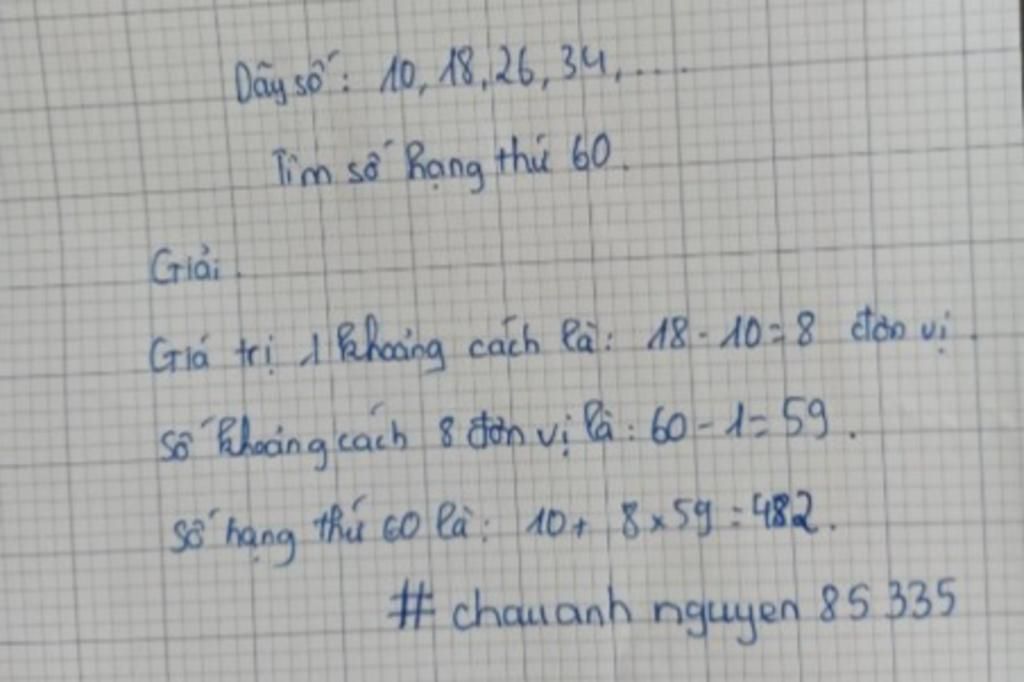 Dãy số: 10, 18, 26, 34, ....
Tìm số hạng thứ 60.
Giải.
Giá trị 1 khoảng cách là: 18 - 10 = 8 đơn vị.
Số khoảng cách 8 đơn vị là: 60 - 1 = 59.
Số hạng thứ 60 là: 10 + 8 x 59 = 482.
# chauanh nguyen 85 335